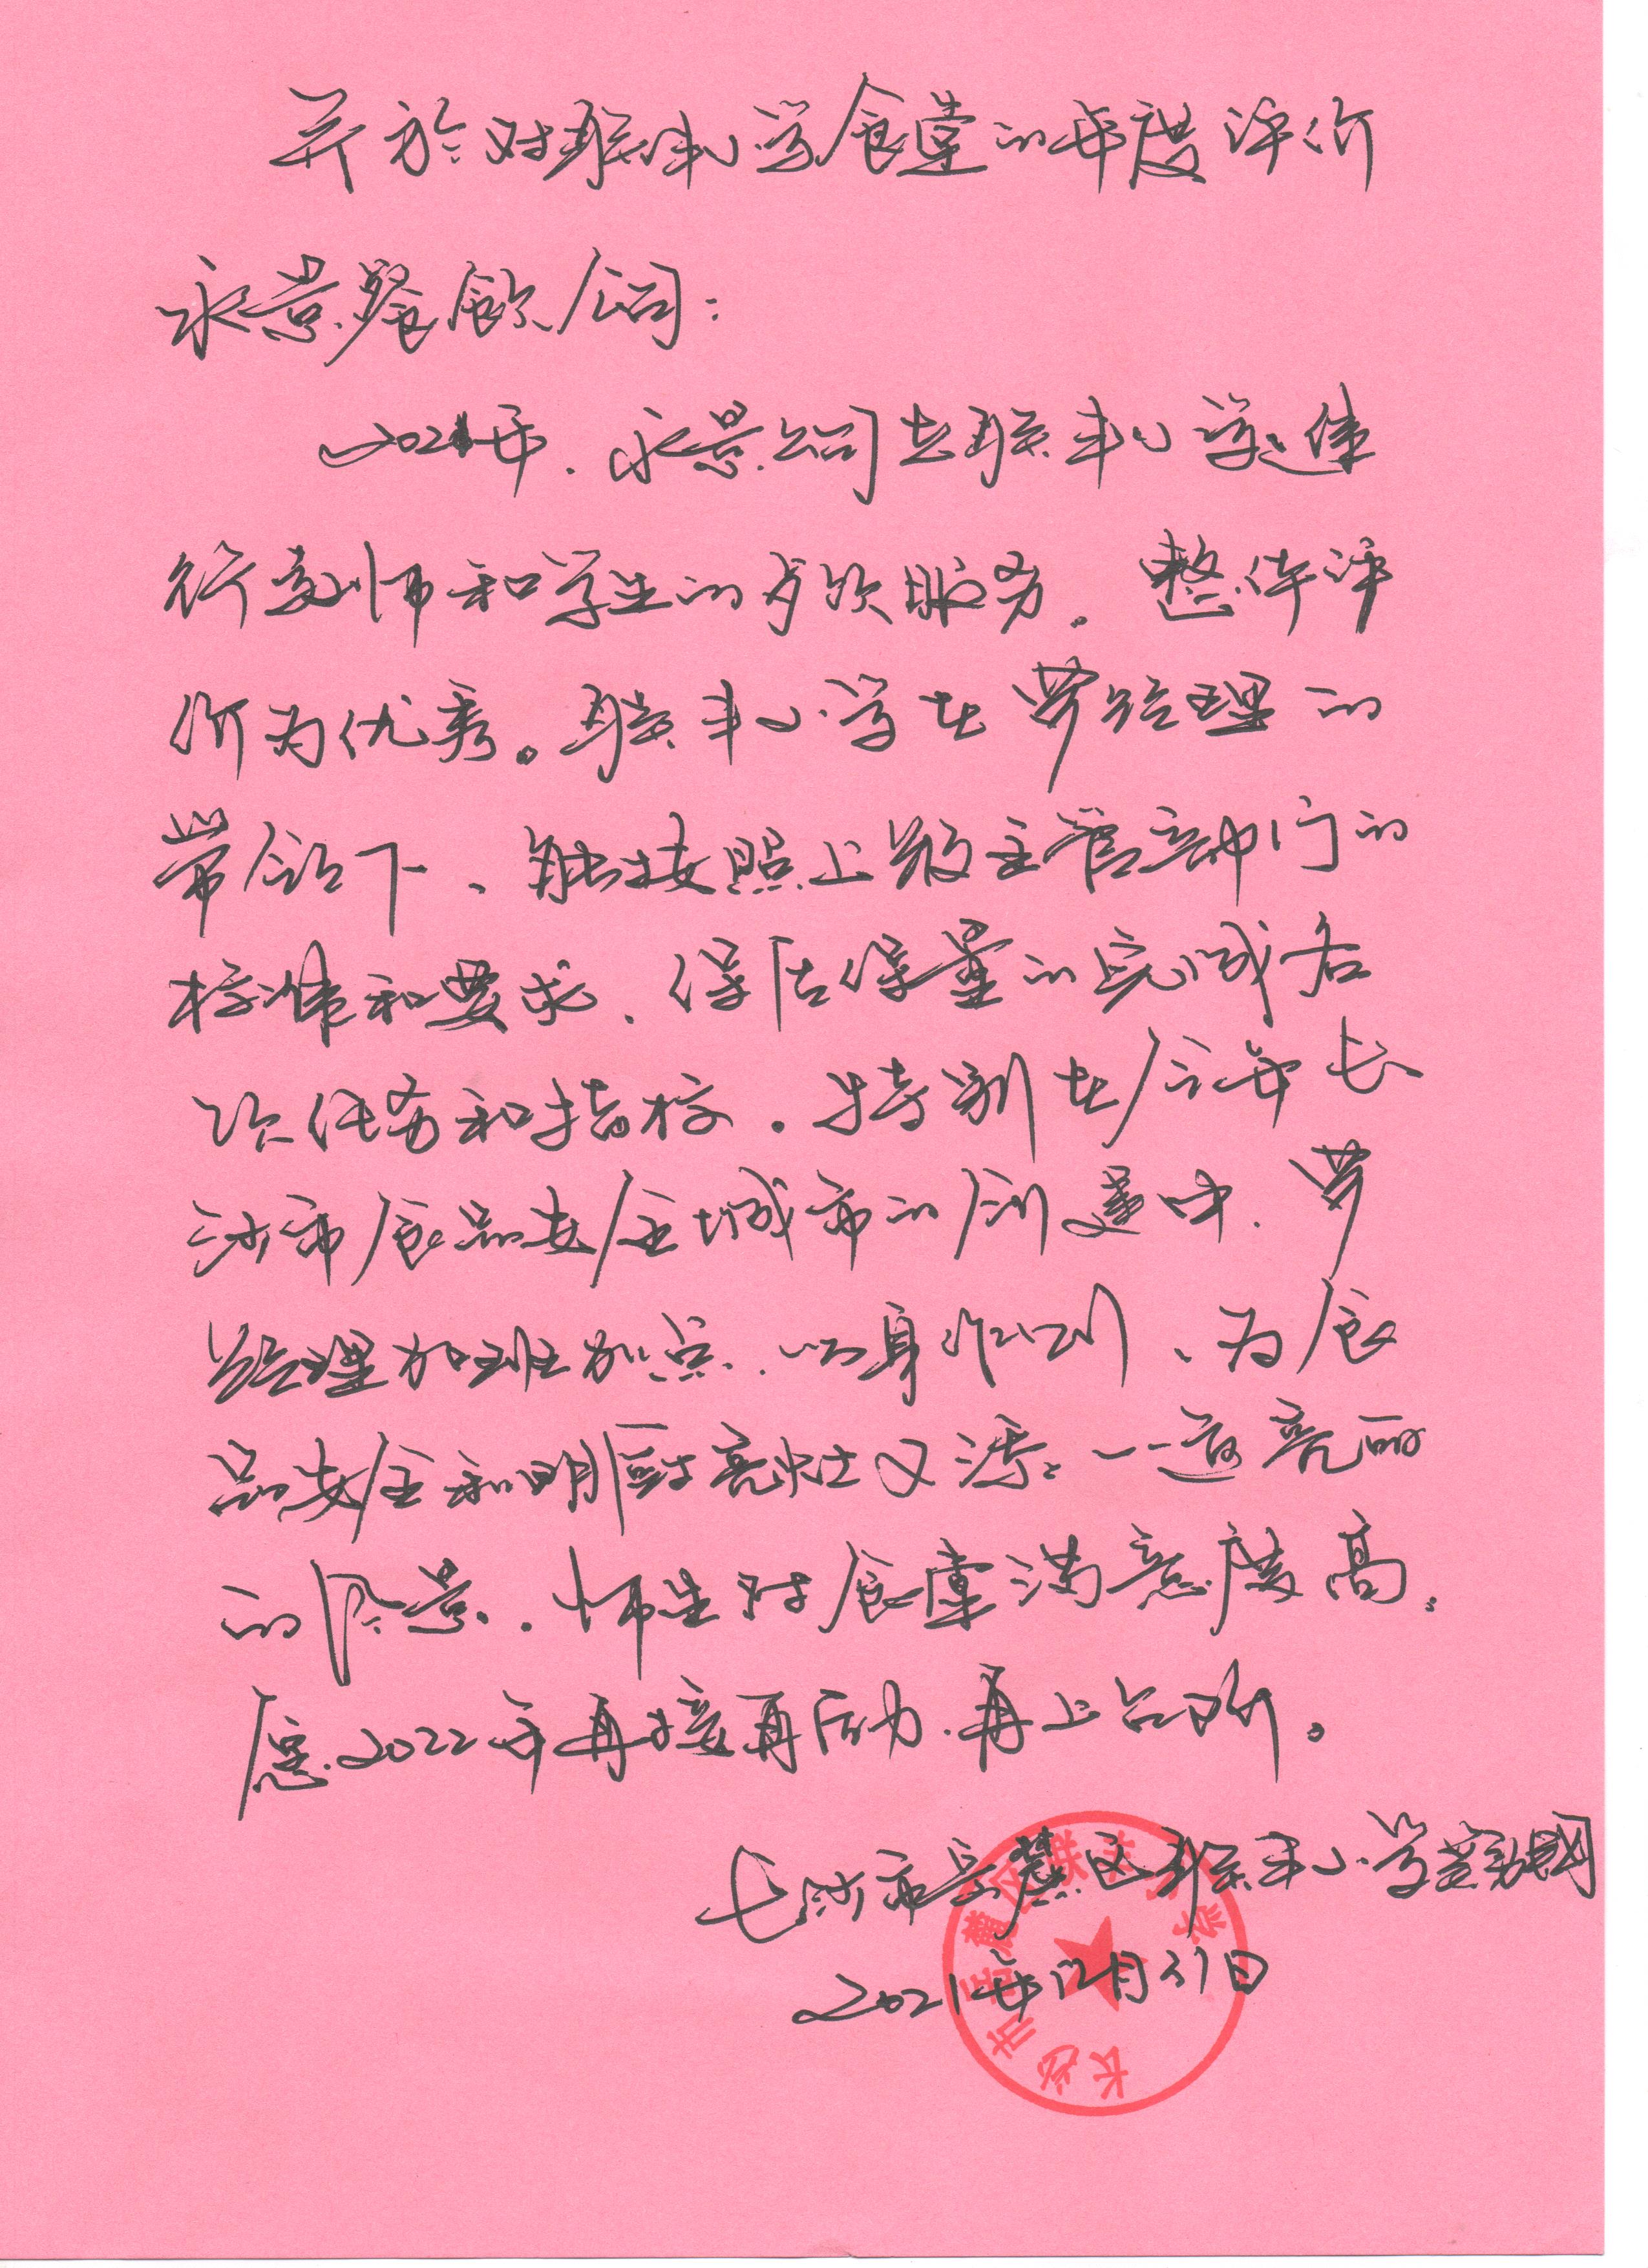 关於对联丰小学食堂的年度评价
永景餐飲公司：
2021年，永景公司在联丰小学进
行老师和学生的各项服务，整体评
价为优秀。联丰小学在罗经理的
带领下，能按照上级主管部门的
标准和要求，保质保量的完成各
项任务和指标，特别在今年长
沙市食品安全城市的创建中，罗
经理加班加点，以身作则，为食
品安全和明厨亮灶又添一道亮丽
的风景，师生对食堂满意度高。
愿2022年再接再厉，再上台阶。
长沙市岳麓区联丰小学
2021年12月31日
长沙市岳麓区联丰小学